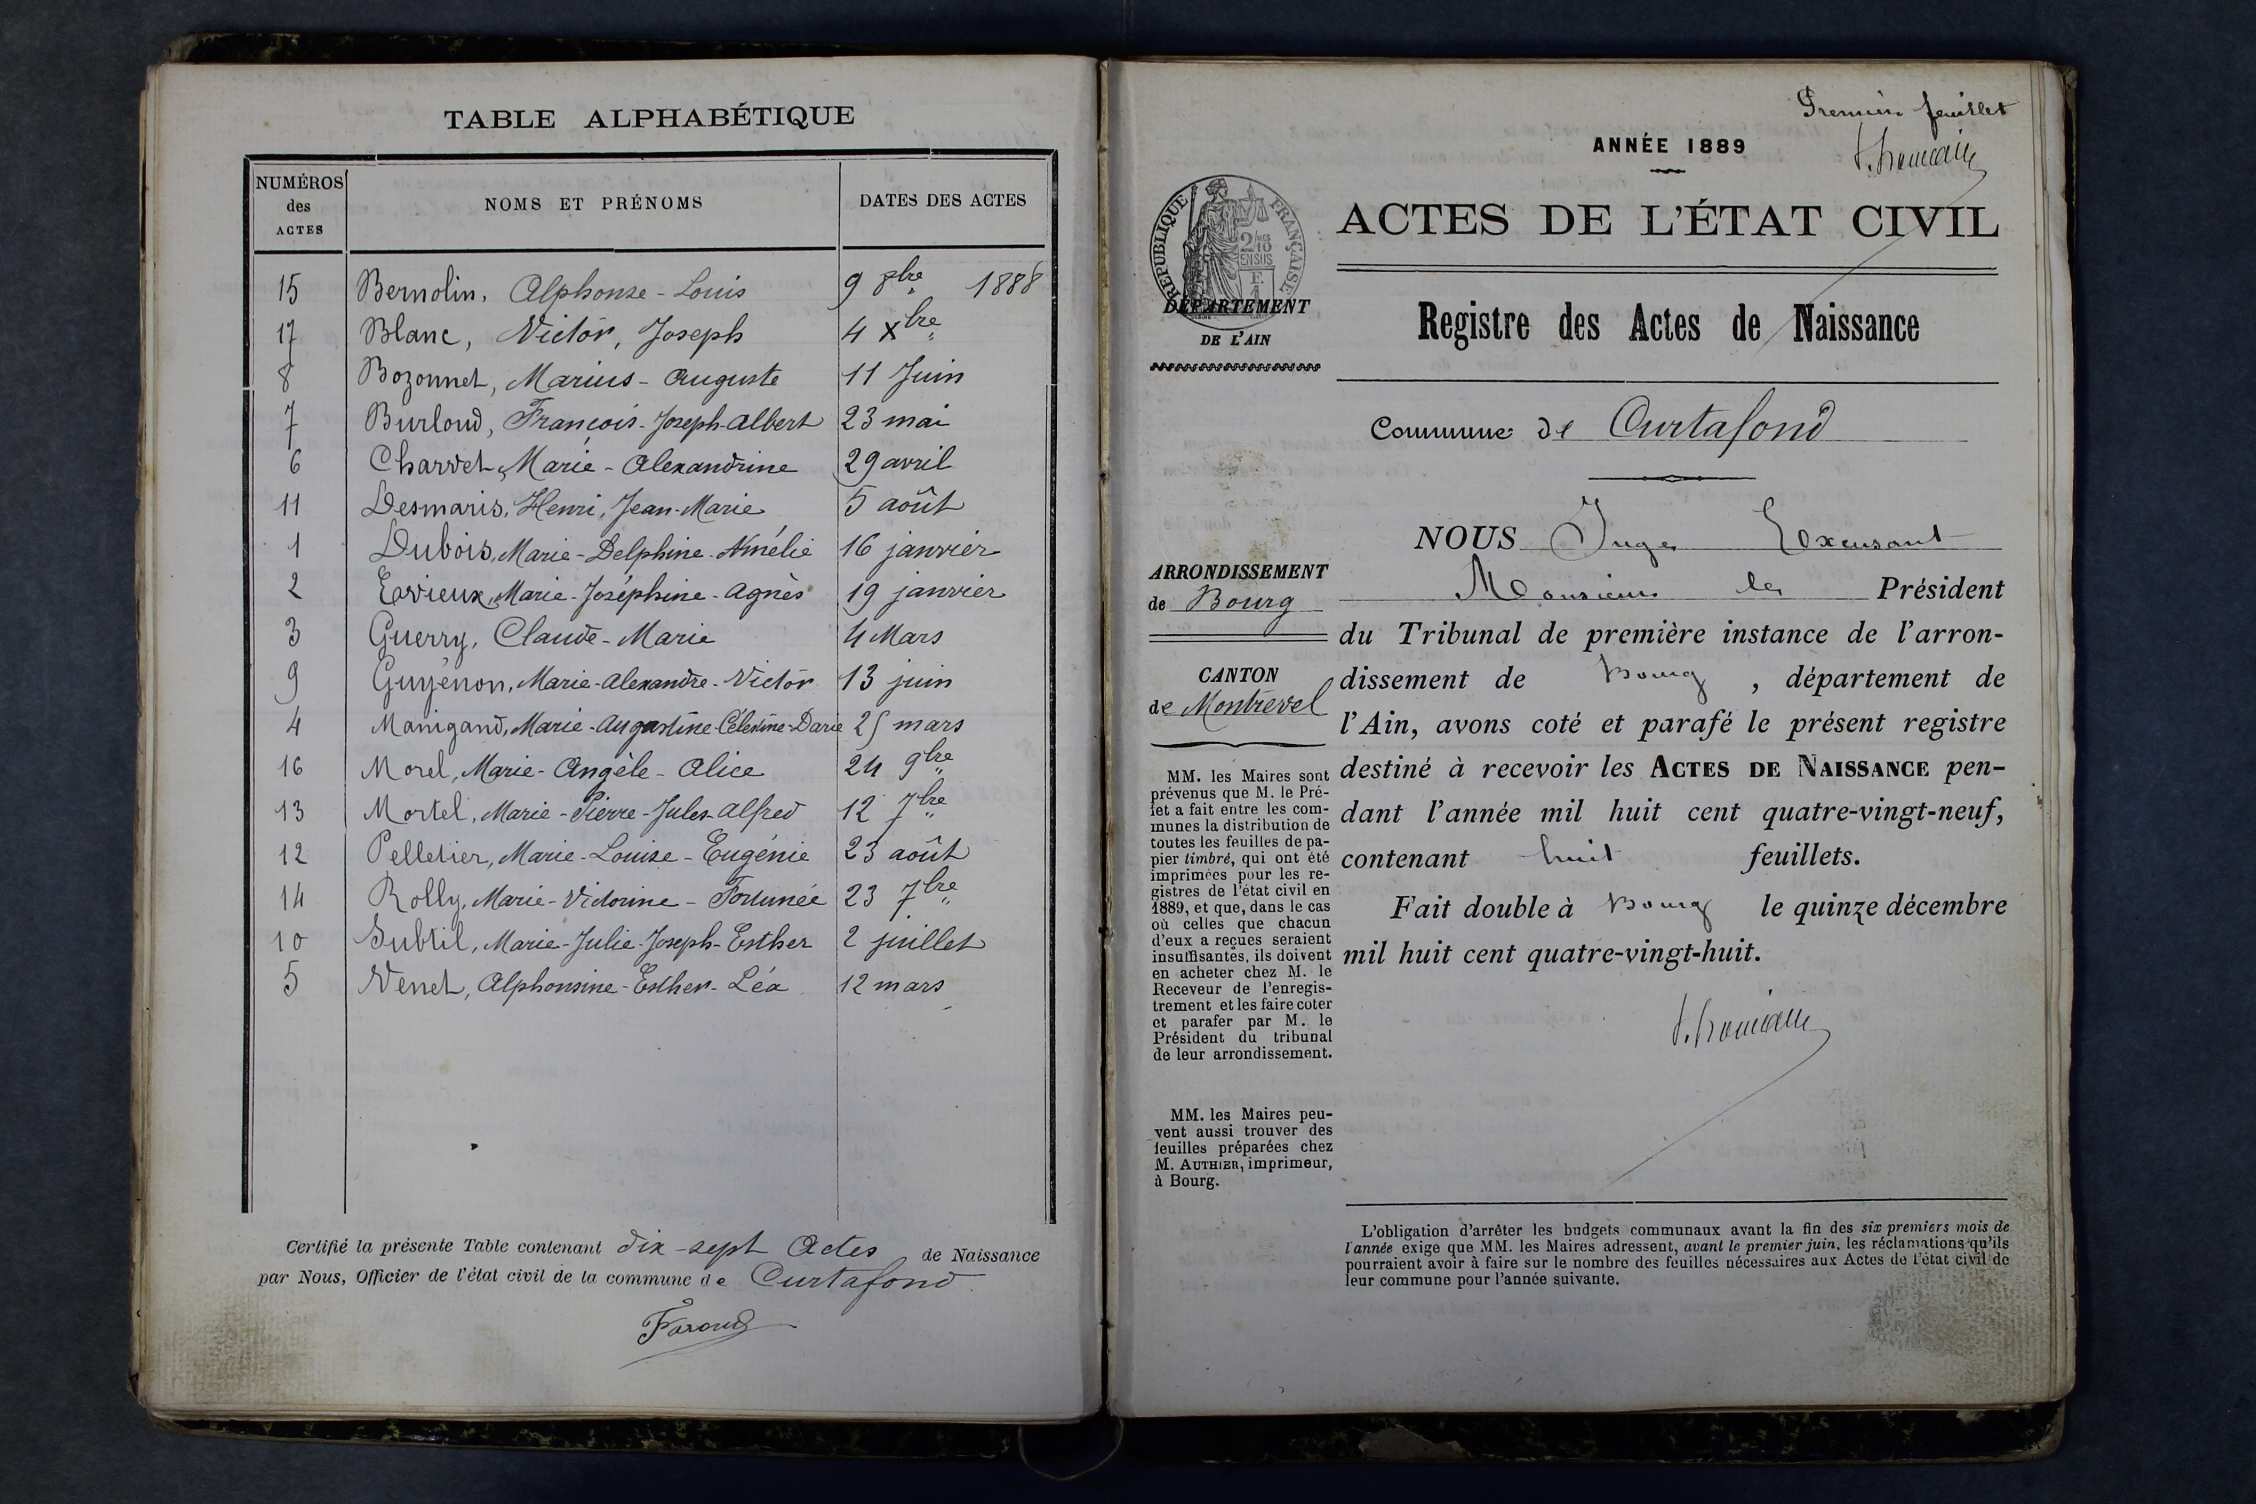 TABLE ALPHABÉTIQUE
NUMÉROS des ACTES
NOMS ET PRÉNOMS
DATES DES ACTES
15 Bernolin, Alphonse-Louis 9 8bre 1888
17 Blanc, Victor, Joseph 4 Xbre
8 Bozonnet, Marius-Auguste 11 Juin
7 Burloud, François-Joseph-Albert 23 mai
6 Charvet, Marie-Alexandrine 29 avril
11 Desmaris, Henri, Jean-Marie 5 août
1 Dubois, Marie-Delphine-Amélie 16 janvier
2 Ervieux, Marie-Joséphine-Agnès 19 janvier
3 Guerry, Claude-Marie 4 Mars
9 Guyénon, Marie-Alexandre-Victor 13 juin
4 Manigand, Marie-Augustine-Célestine-Darie 25 mars
16 Morel, Marie-Angèle-Alice 24 9bre
13 Mortel, Marie-Pierre-Jules-Alfred 12 7bre
12 Pelletier, Marie-Louise-Eugénie 23 août
14 Rolly, Marie-Victorine-Fortunée 23 7bre
10 Subtil, Marie-Julie-Joseph-Esther 2 juillet
5 Venet, Alphonsine-Esther-Léa 12 mars
Certifié la présente Table contenant dix-sept Actes de Naissance
par Nous, Officier de l'état civil de la commune de Curtafond
Faroud
Premier feuillet
ANNÉE 1889
RÉPUBLIQUE FRANÇAISE
ACTES DE L'ÉTAT CIVIL
DÉPARTEMENT
DE L'AIN
Registre des Actes de Naissance
Commune de Curtafond
NOUS Juge Exerçant
Monsieur le Président
du Tribunal de première instance de l'arron-
dissement de Bourg, département de
l'Ain, avons coté et parafé le présent registre
destiné à recevoir les ACTES DE NAISSANCE pen-
dant l'année mil huit cent quatre-vingt-neuf,
contenant huit feuillets.
Fait double à Bourg le quinze décembre
mil huit cent quatre-vingt-huit.
ARRONDISSEMENT
de Bourg
CANTON
de Montrevel
MM. les Maires sont
prévenus que M. le Pré-
fet a fait entre les com-
munes la distribution de
toutes les feuilles de pa-
pier timbré, qui ont été
imprimées pour les re-
gistres de l'état civil en
1889, et que, dans le cas
où celles que chacun
d'eux a reçues seraient
insuffisantes, ils doivent
en acheter chez M. le
Receveur de l'enregis-
trement et les faire coter
et parafer par M. le
Président du tribunal
de leur arrondissement.
MM. les Maires peu-
vent aussi trouver des
feuilles préparées chez
M. AUTHIER, imprimeur,
à Bourg.
L'obligation d'arrêter les budgets communaux avant la fin des six premiers mois de
l'année exige que MM. les Maires adressent, avant le premier juin, les réclamations qu'ils
pourraient avoir à faire sur le nombre des feuilles nécessaires aux Actes de l'état civil de
leur commune pour l'année suivante.